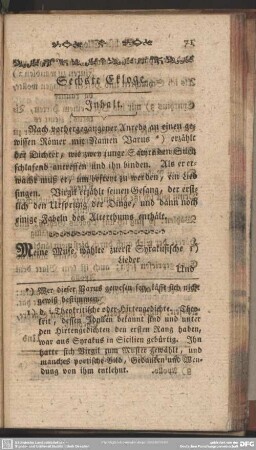 71
Sechste Ekloge.
Inhalt.
Nach vorhergegangener Anrede an einen ge-
wissen Römer mit Namen Varus *) erzählt
der Dichter, wie zwey junge Satyre den Silen
schlafend antreffen und ihn binden. Als er er-
wacht muß er, um befreyt zu werden, ein Lied
singen. Virgil erzählt seinen Gesang, der erste
sich den Ursprung der Dinge, und dann noch
einige Fabeln des Alterthums enthält.
Meine Muse wählte zuerst Syrakusische ¹)
Lieder
Und
*) Wer dieser Varus gewesen sey, läßt sich nicht
gewiß bestimmen.
1) d. i. Theokritische oder Hirtengedichte. Theo-
krit, dessen Idyllen bekannt sind und unter
den Hirtengedichten den ersten Rang haben,
war aus Syrakus in Sicilien gebürtig. Ihn
hatte sich Virgil zum Muster gewählt, und
manches poetische Bild, Gedanken und Wen-
dung von ihm entlehnt.